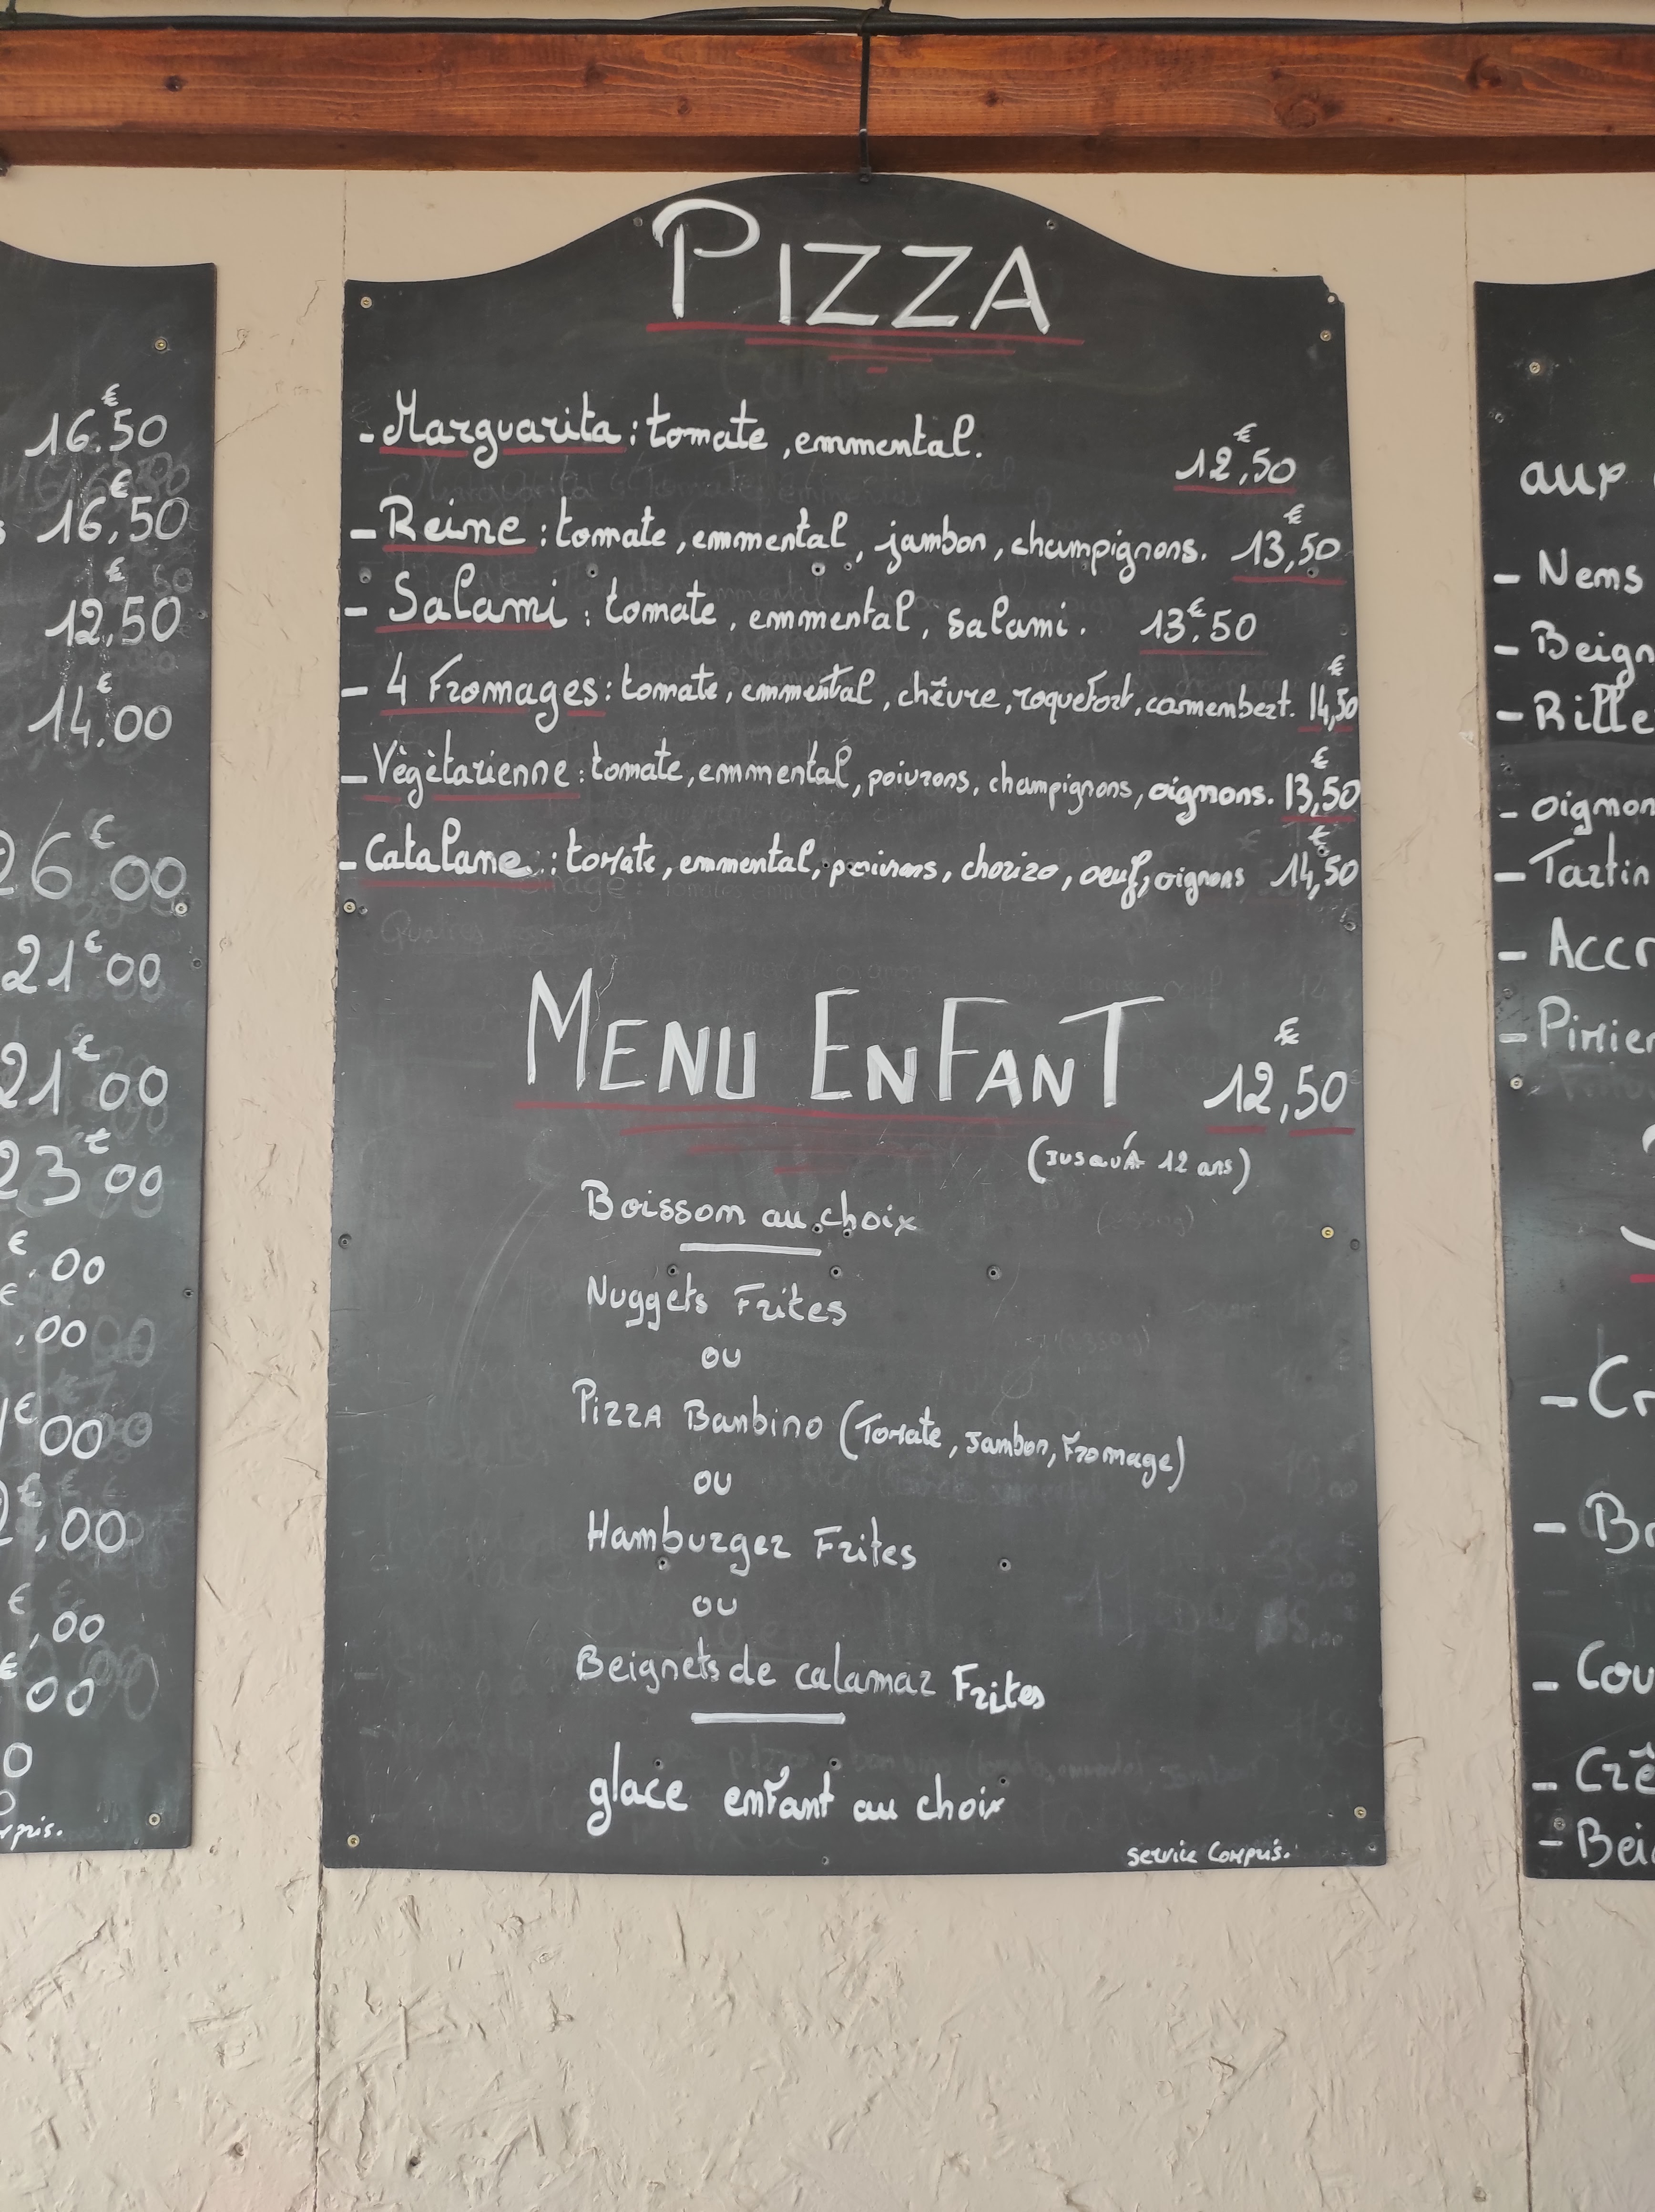 PIZZA
- Marguarita : tomate , emmental. 12,50 €
- Reine : tomate , emmental , jambon , champignons. 13,50 €
- Salami : tomate , emmental , salami . 13,50 €
- 4 Fromages : tomate , emmental , chêvre , roquefort , camembert. 14,50 €
- Vègètarienne : tomate , emmental , poivrons , champignons , oignons. 13,50 €
- Catalane : tomate , emmental , poivrons , chorizo , oeuf , oignons 14,50 €
MENU ENFANT 12,50 €
(JUSQU'À 12 ans)
Boisson au choix
Nuggets Frites
ou
Pizza Banbino (Tomate , Jambon , Fromage)
ou
Hamburger Frites
ou
Beignets de calamar Frites
glace enfant au choix
service compris.
16.50 €
16,50 €
12,50 €
14.00 €
26 € 00
21 € 00
21 € 00
23 € 00
€ .00
€ ,00
€ 00
€ ,00
€ ,00
€ 00
aux
- Nems
- Beign
- Rille
- oignon
- Tartin
- Accr
- Pimien
- Cr
- Br
- Cou
- Crê
- Bei